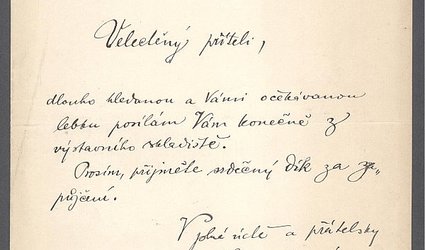 Veleděný příteli,
dlouho hledanou a Vámi očekávanou
lebku posílám Vám konečně z
výstavního skladiště.
Prosím, přijměte srdečný dík za za„
půjčení.
V plné úctě a přátelsky